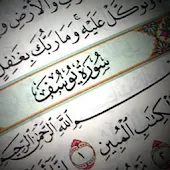 وَٱلْأَرْضِ
وَتَوَكَّلْ عَلَيْهِ وَمَا رَبُّكَ بِغَٰفِلٍ
سُورَةُ يُوسُفَ
ٱللَّهِ ٱلرَّحْمَٰنِ ٱلرَّحِيمِ
ٱلْكِتَٰبِ ٱلْمُبِينِ ١